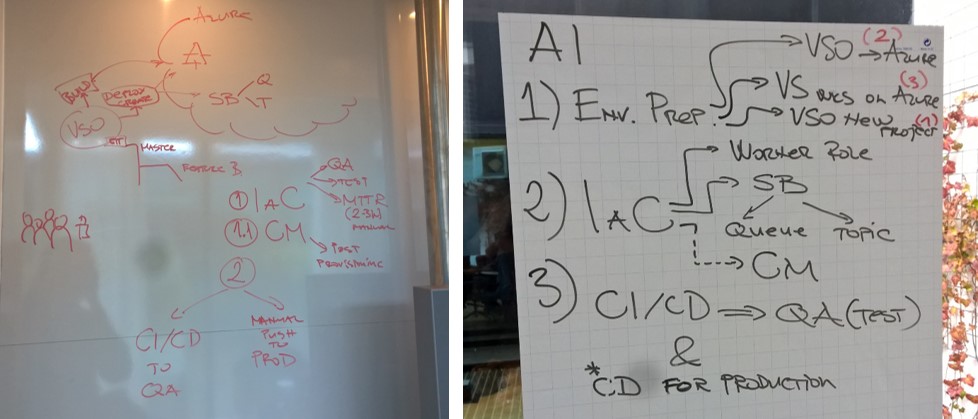 AZURE
BUILD
DEPLOY
VSO
SB
Q
T
GIT
MASTER
FEATURE B.
1 IAC
QA
TEST
MTTR
(2-3W)
MANUAL
1.1 CM
POST
PROVISIONING
2
CI/CD
TO
QA
MANUAL
PUSH
TO
PROD
AI
1) ENV. PREP.
VSO (2)
→ AZURE
VS (3)
ON AZURE
VSO NEW (1)
PROJECT
2) IAC
WORKER ROLE
SB
QUEUE TOPIC
CM
3) CI/CD ⇒ QA (TEST)
&
*CD FOR PRODUCTION